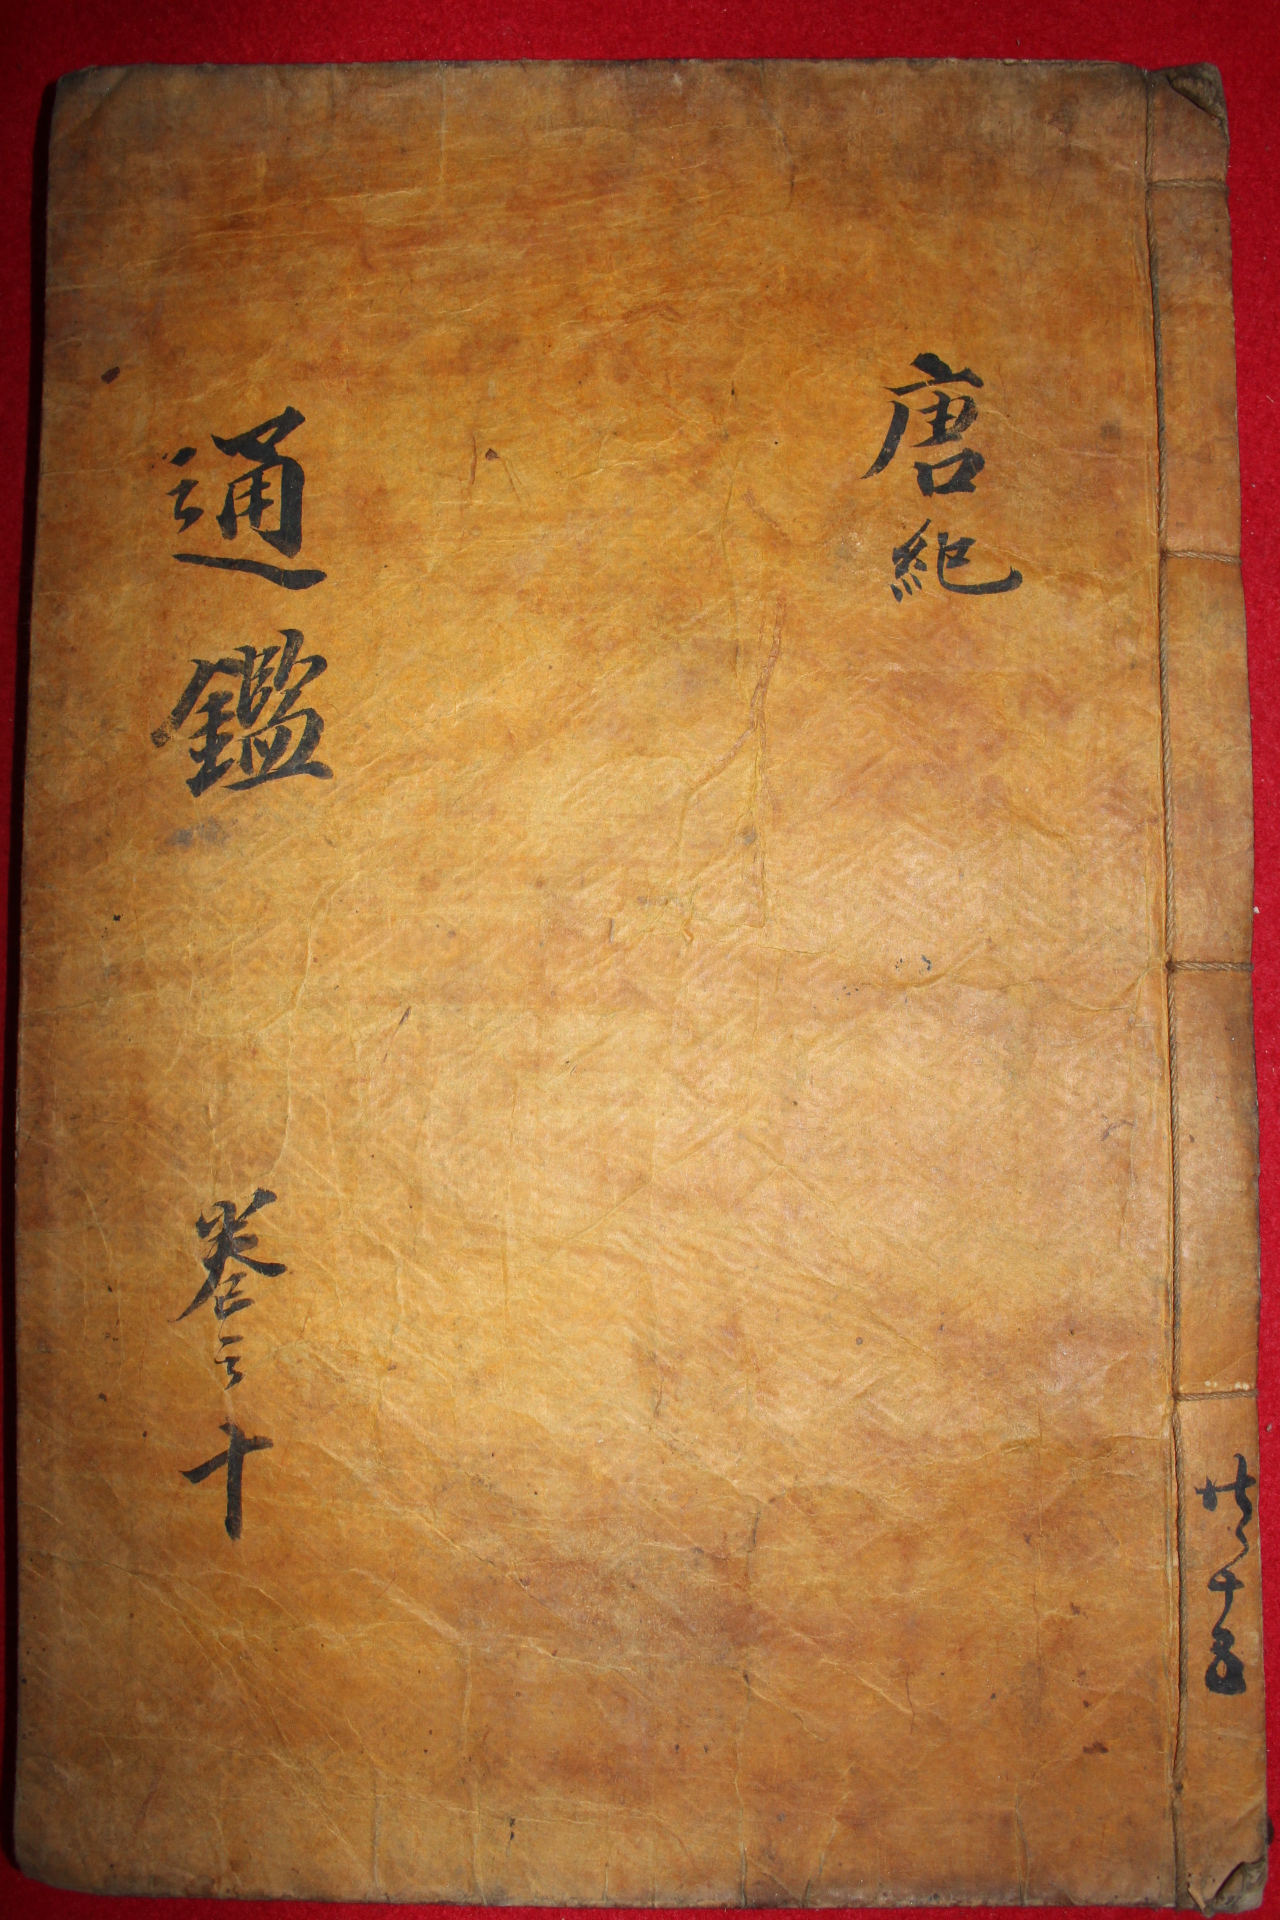 唐紀
通鑑
卷之十
共十五